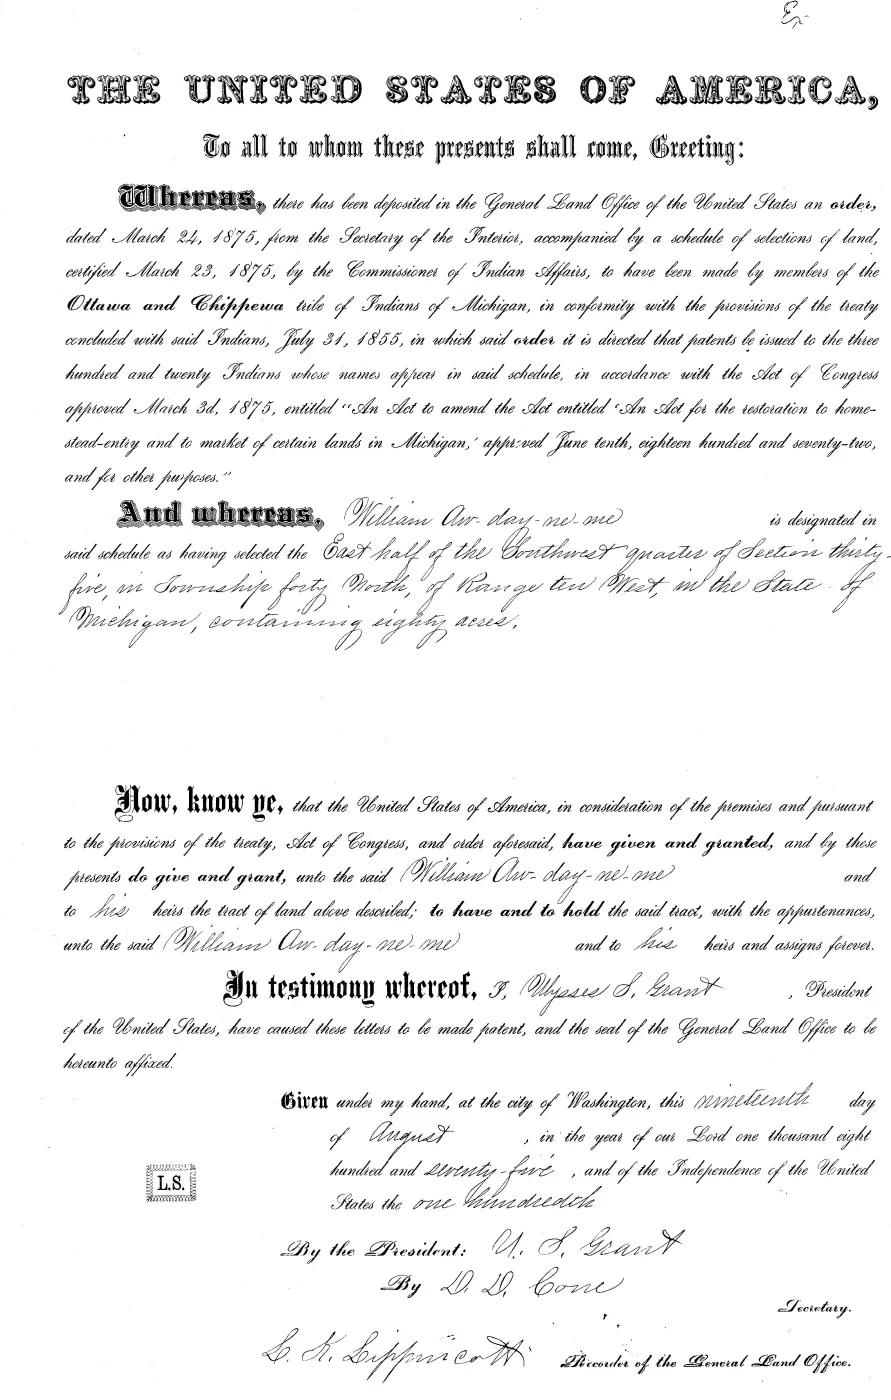 Ex
THE UNITED STATES OF AMERICA,
To all to whom these presents shall come, Greeting:
Whereas, there has been deposited in the General Land Office of the United States an order,
dated March 24, 1875, from the Secretary of the Interior, accompanied by a schedule of selections of land,
certified March 23, 1875, by the Commissioner of Indian Affairs, to have been made by members of the
Ottawa and Chippewa tribe of Indians of Michigan, in conformity with the provisions of the treaty
concluded with said Indians, July 31, 1855, in which said order it is directed that patents be issued to the three
hundred and twenty Indians whose names appear in said schedule, in accordance with the Act of Congress
approved March 3d, 1875, entitled "An Act to amend the Act entitled 'An Act for the restoration to home-
stead-entry and to market of certain lands in Michigan,' approved June tenth, eighteen hundred and seventy-two,
and for other purposes."
And whereas, William Aw-day-ne-me is designated in
said schedule as having selected the East half of the Southwest quarter of Section thirty-
five, in Township forty North, of Range ten West, in the State of
Michigan, containing eighty acres.
Now, know ye, that the United States of America, in consideration of the premises and pursuant
to the provisions of the treaty, Act of Congress, and order aforesaid, have given and granted, and by these
presents do give and grant, unto the said William Aw-day-ne-me and
to his heirs the tract of land above described; to have and to hold the said tract, with the appurtenances,
unto the said William Aw-day-ne-me and to his heirs and assigns forever.
In testimony whereof, I, Ulysses S. Grant, President
of the United States, have caused these letters to be made patent, and the seal of the General Land Office to be
hereunto affixed.
Given under my hand, at the city of Washington, this nineteenth day
of August, in the year of our Lord one thousand eight
hundred and seventy-five, and of the Independence of the United
L.S.
States the one hundredth
By the President: U. S. Grant
By D. D. Cone
Secretary.
L. K. Lippincott Recorder of the General Land Office.